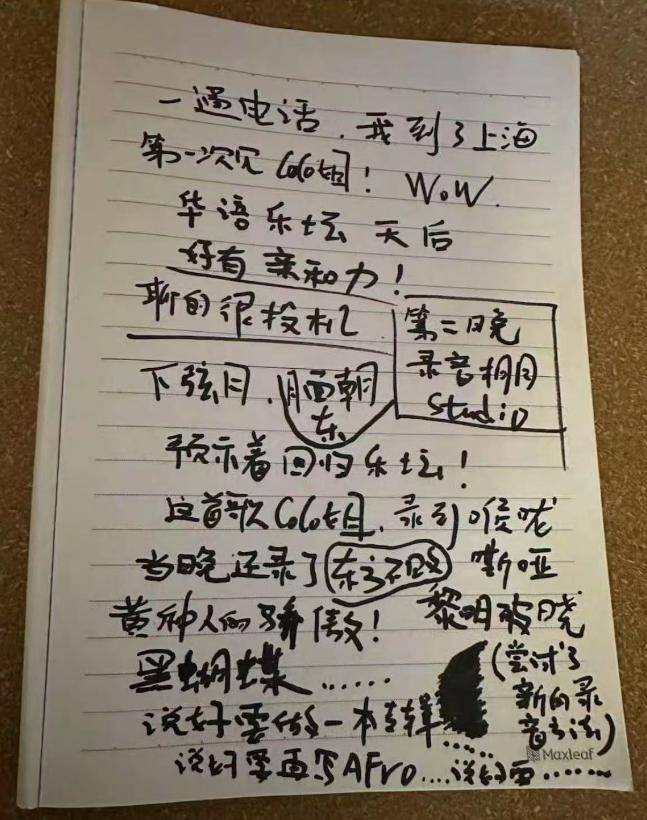 一通电话，我到了上海
第一次见CoCo姐！WoW.
华语乐坛 天后
好有亲和力！
聊的很投机
第二晚
录音棚用
Studio
下弦月，月面朝
东
预示着回归乐坛！
这首歌CoCo姐，录到喉咙
嘶哑
当晚还录了东方不败
黄种人的骄傲！黎明破晓
黑蝴蝶……
（尝试了
新的录
音方法）
说好要做一本专辑……
说好要再写AFro....说好要……
Maxleaf